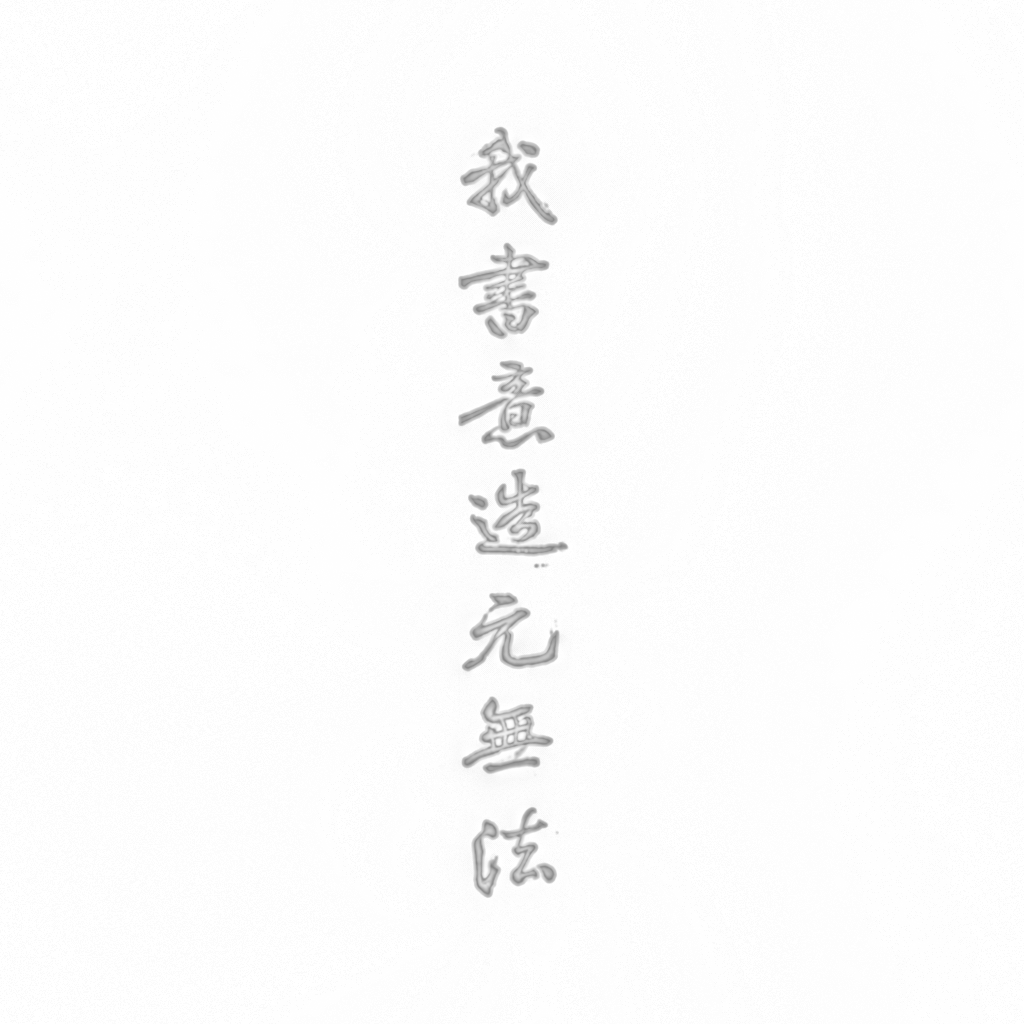 我書意造元無法